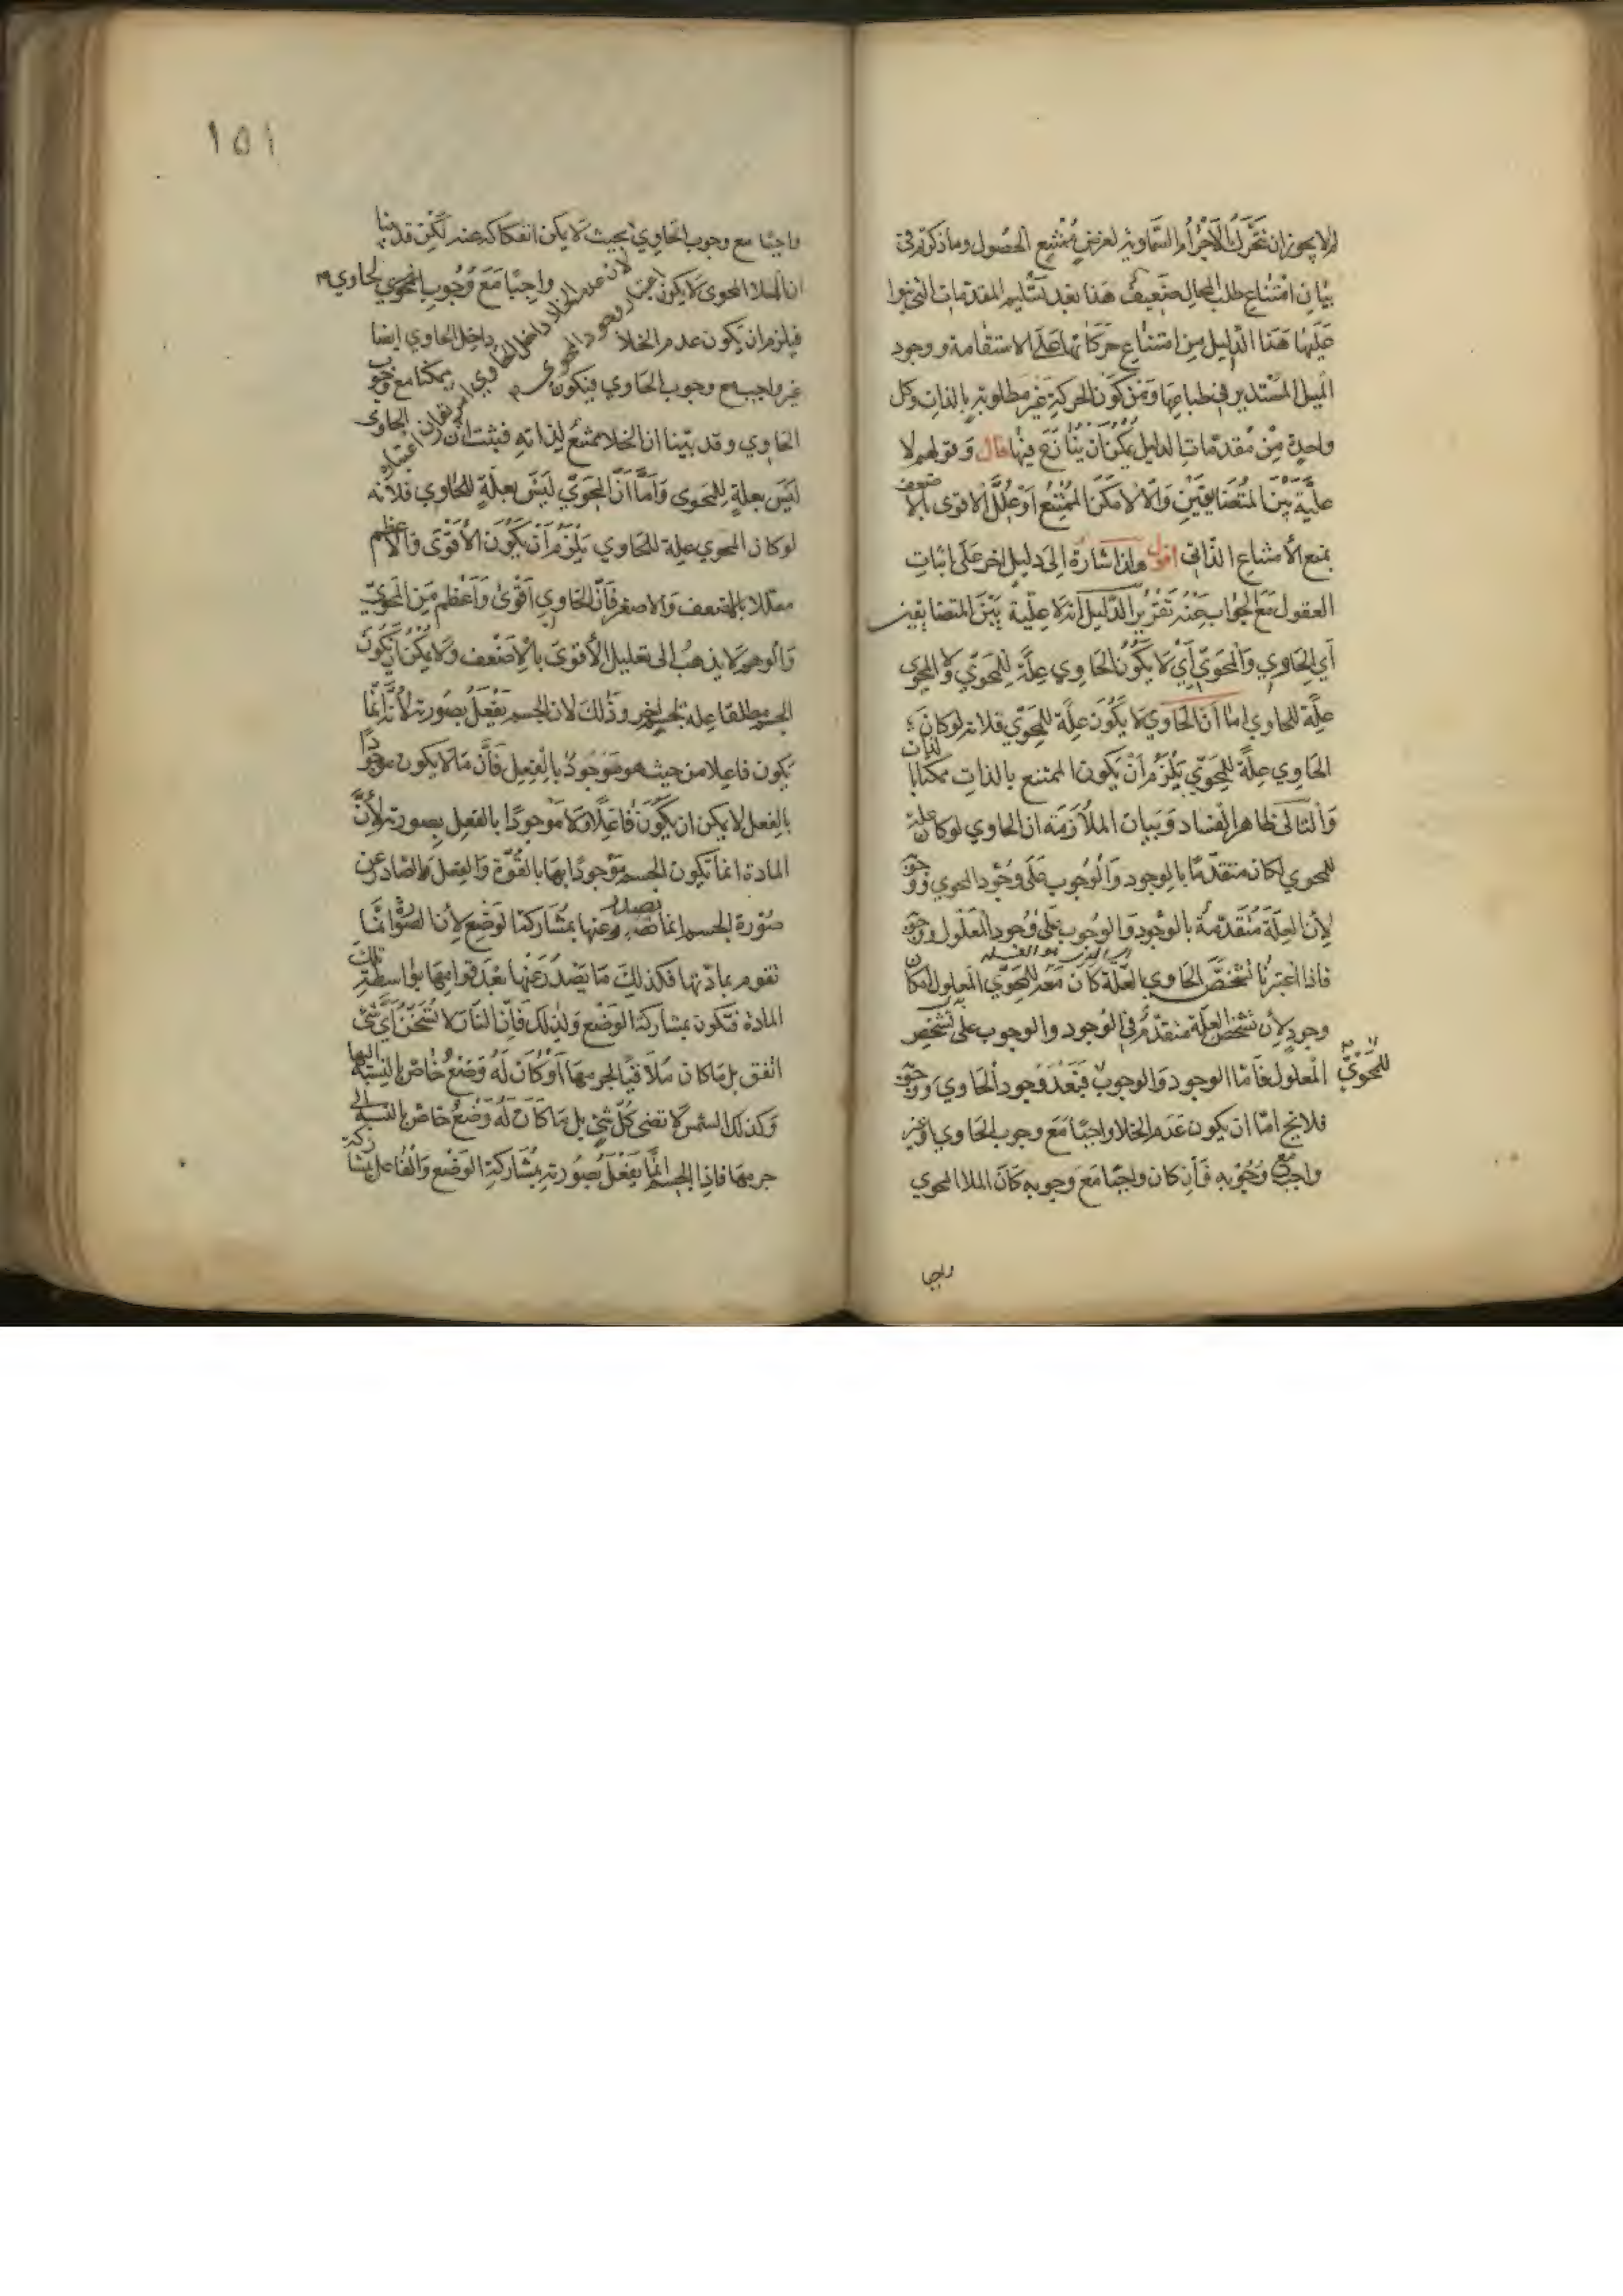 لم لا يجوز ان تتحرك الاجرام السماوية لغرض ممتنع الحصول وما ذكرتم في
بيان امتناع طلب المحال ضعيف هذا بعد تسليم المقدمات التي بنوا
عليها هذا الدليل من امتناع حركاتها على الاستقامة ووجود
الميل المستدير في طباعها ومن كون الحركة غير مطلوبة بالذات وكل
واحدة من مقدمات الدليل يمكن ان ينازع فيها قال وقولهم لا
علية بين المتضايفين والا لامكن الممتنع او علل الاقوى بالاضعف
بمنع الامتناع الذاتي اقول هذا اشارة الى دليل اخر على اثبات
العقول مع الجواب عنه تقرير الدليل انه لا علية بين المتضايفين
اي الحاوي والمحوي اي لا يكون الحاوي علة للمحوي ولا المحوي
علة للحاوي اما ان الحاوي لا يكون علة للمحوي فلانه لو كان
الحاوي علة للمحوي يلزم ان يكون الممتنع بالذات ممكنا بالذات
والتالي ظاهر الفساد وبيان الملازمة ان الحاوي لو كان علة
للمحوي لكان متقدما بالوجود والوجوب على وجود المحوي ووجوبه
لان العلة متقدمة بالوجود والوجوب على وجود المعلول ووجوبه
فاذا اعتبرنا تشخص الحاوي بالعلة كان معه للمحوي المعلول امكان
وجود لان تشخص العلة متقدم في الوجود والوجوب على تشخص
المعلول فاما الوجود والوجوب للمحوي فبعد وجود الحاوي ووجوبه
فلا يخ اما ان يكون عدم الخلا واجبا مع وجوب الحاوي او غير
واجب مع وجوبه فان كان واجبا مع وجوبه كان الملا المحوي
واجبا
١٥١
واجبا مع وجوب الحاوي بحيث لا يمكن انفكاكه عنه لكن قد بينا
ان الملا المحوي لا يكون واجبا مع وجوب الحاوي
فيلزم ان يكون عدم الخلا داخل الحاوي ايضا
غير واجب مع وجوب الحاوي فيكون ممكنا مع وجوب
الحاوي وقد بينا ان الخلا ممتنع لذاته فثبت ان الحاوي
ليس بعلة للمحوي واما ان المحوي ليس بعلة للحاوي فلانه
لو كان المحوي علة للحاوي يلزم ان يكون الاقوى والاعظم
معللا بالاضعف والاصغر فان الحاوي اقوى واعظم من المحوي
والوهم لا يذهب الى تعليل الاقوى بالاضعف ولا يمكن ان يكون
الجسم مطلقا علة لجسم اخر وذلك لان الجسم يفعل بصورته لانه انما
يكون فاعلا من حيث هو موجود بالفعل فان ما لا يكون موجودا
بالفعل لا يمكن ان يكون فاعلا ولا موجودا بالفعل بصورته لان
المادة انما تكون الجسم موجودا بها بالقوة والفعل الصادر عن
صورة الجسم انما يصدر عنها بمشاركة الوضع لان الصورة انما
تقوم بمادتها فكذلك ما يصدر عنها بعد قوامها بواسطة تلك
المادة فتكون بمشاركة الوضع ولذلك فان النار لا تسخن اي شئ
اتفق بل ما كان ملاقيا لجرمها او كان له وضع خاص بالنسبة اليها
وكذلك الشمس لا تضئ كل شئ بل ما كان له وضع خاص بالنسبة الى
جرمها فاذا الجسم انما يفعل بصورته بمشاركة الوضع والفاعل بمشاركة